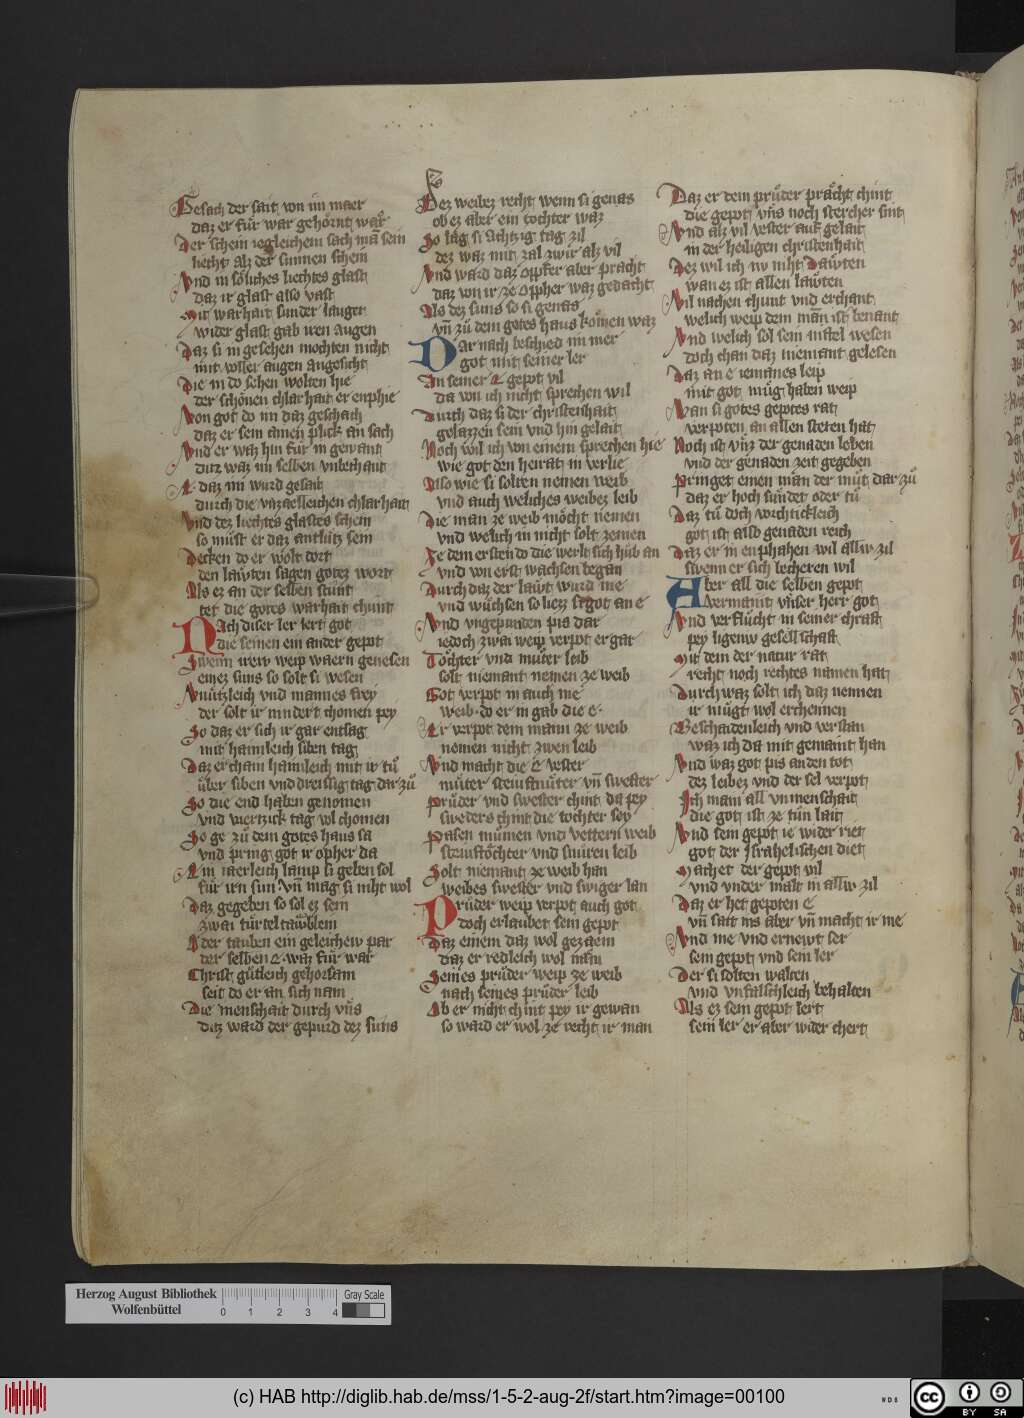 Gesach der sait von im maer
daz er für war gehörnt wär
Der schein iegleichem sach man sein
liecht alz der sunnen schein
Vnd in söliches liechtes glast
daz ir glast also vast
Mit warhait sunder laugen
wider glast gab iren augen
Daz si in gesehen mochten nicht
mit voller augen angesicht
Die in do sehen wolten hie
der schönen chlarhait er enphie
Von got do im daz geschach
daz er sein ainen plick an sach
Vnd er waz hin für in gewant
ditz waz im selben vnbechant
E daz im wurd gesait
durch die vnzaelleichen chlarhait
Vnd dez liechtes glastes schein
so müst er daz antlütz sein
Decken do er wolt dort
den läwten sagen gotez wort
Als ez an der selben stunt
tet die gotes warhait chunt
Nach diser ler lert got
die seinen ein ander gepot
Swenn irew weip waern genesen
einez suns so solt si wesen
Vnützleich vnd mannes frey
der solt ir nindert chomen pey
So daz er sich ir gar entsag
mit haimleich siben tag
Daz er chain haimleich mit ir tü
über siben vnd dreissig tag dar zü
So die end haben genomen
vnd viertzick tag vol chomen
So ge zü dem gotes haus sa
vnd pring got ir opher da
Ein iaerleich lamp si geben sol
für irn sun vñ mag si niht wol
Daz gegeben so sol ez sein
zwai türteltäwblein
Oder tauben ein geleichew par
der selben E waz für war
Christ gütleich gehorsam
seit do er an sich nam
Die menschait durch vns
ditz ward der gepurd dez suns
Dez weibez recht wenn si genas
ob ez aber ein tochter waz
So lag si Achtzig tag zil
dez waz mit zal zwir alz vil
Vnd ward daz oppfer aber pracht
daz von ir ze oppher waz gedacht
Als dez suns so si genas
vñ zü dem gotes haus komen waz
Dar nach beschied im mer
got mit seiner ler
An seiner E gepot vil
da von ich nicht sprechen wil
Durch daz si der christenhait
gelazzen sein vnd hin gelait
Noch wil ich von einem sprechen hie
wie got den heirat in verlie
Also wie si solten nemen weib
vnd auch weliches weibez leib
Die man ze weib möcht nemen
vnd welich in nicht solt zemen
Ze dem ersten do die werlt sich hüb an
vnd von erst wachsen began
Durch daz der läwt wurd me
vnd wüchsen so liezz si got an e
Vnd vngepunden pis dar
iedoch zwai weip verpot er gar
Tochter vnd müter leib
solt niemant nemen ze weib
Got verpot in auch me
weib do er in gab die e
Er verpot dem mann ze weib
nemen nicht zwen leib
Vnd macht die E vester
müter steufmüter vñ swester
Prüder vnd swester chint da pey
sweders chint die tochter sey
Pasen mümen vnd vettern weib
steuftöchter vnd snüren leib
Solt niemant ze weib han
weibes swester vnd swiger lan
Prüder weip verpot auch got
doch erlaubet sein gepot
Daz einem daz wol gezaem
daz er redleich wol nam
Seines prüder weip ze weib
nach seines prüder leib
Ob er nicht chint pey ir gewan
so ward er wol ze recht ir man
Daz er dem prüder prächt chint
die gepot vns noch stercher sint
Vnd alz vil vester auf gelait
in der heiligen christenhait
Dez wil ich nv niht däwten
wan ez ist allen läwten
Vil nachen chunt vnd erchant
welich weip dem man ist benant
Vnd welich sol sein mittel wesen
doch chan daz niemant gelesen
Daz an e iemanes leip
mit got müg haben weip
Wan si gotes gepotes rat
verpoten an allen steten hat
Noch ist vnz der genaden leben
vnd der genaden zeit gegeben
Pringet einen man der müt dar zü
daz er hoch sündet oder tü
Daz tü doch vorchtickleich
got ist also genaden reich
Daz er in enphahen wil allw zil
swenn er sich becheren wil
Aber all die selben gepot
vermaint vnser herr got
Vnd verflücht in seiner chraft
pey ligenw gesellschaft
Mit dem der natur rat
recht noch rechtes namen hat
Durch waz solt ich daz nennen
ir mügt wol erchennen
Beschaidenleich vnd verstan
waz ich da mit gemaint han
Vnd waz got pis an den tot
dez leibez vnd der sel verpot
Ich main all vnmenschait
die got ist ze tün lait
Vnd sein gepot ie wider riet
got der Israhelischen diet
Machet der gepot vil
vnd vnder malt in allw zil
Daz er het gepoten e
vñ satt ins aber vñ macht ir me
Vnd me vnd ernewt ser
sein gepot vnd sein ler
Der si solten walten
vnd vnfalschleich behalten
Als ez sein gepot lert
sein ler er aber wider chert
Herzog August Bibliothek
Wolfenbüttel
0 1 2 3 4
Gray Scale
(c) HAB http://diglib.hab.de/mss/1-5-2-aug-2f/start.htm?image=00100
cc BY SA